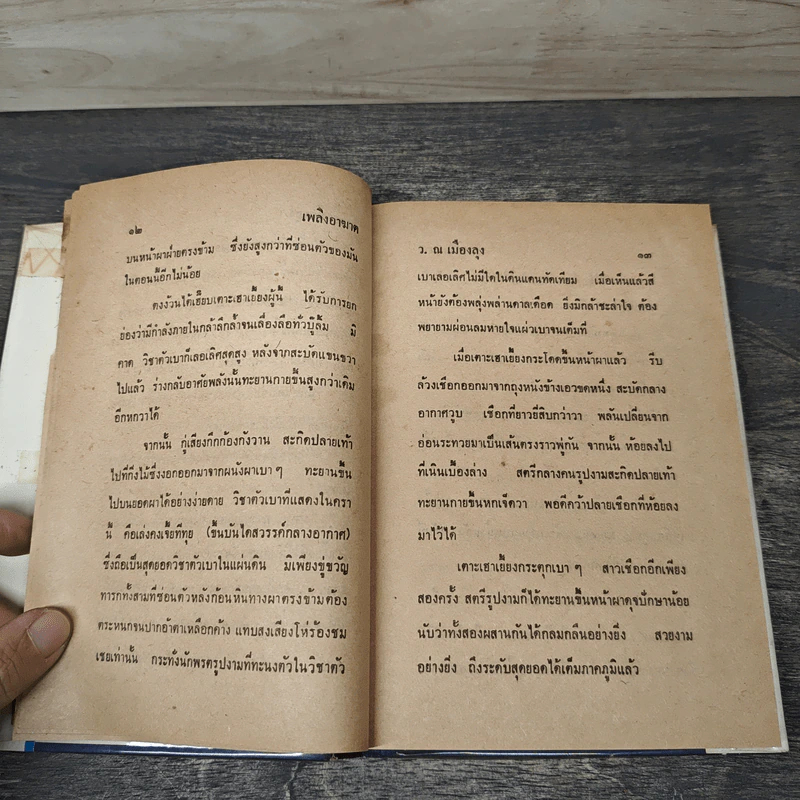 ๑๒
เพลิงอาฆาต
บนหน้าผาฝ่ายตรงข้าม ซึ่งยังสูงกว่าที่ซ่อนตัวของมัน
ในตอนนี้อีกไม่น้อย
ตงง้วนไต้เฮียบเตาะเฮาเยี้ยงผู้นี้ ได้รับการยก
ย่องว่ามีกำลังภายในกล้าลึกล้ำจนเลื่องลือทั่วบู๊ลิ้ม มิ
คาด วิชาตัวเบาก็เลอเลิศสุดสูง หลังจากสะบัดแขนขวา
ไปแล้ว ร่างกลับอาศัยพลังนั้นทะยานกายขึ้นสูงกว่าเดิม
อีกหกวาได้
จากนั้น กู่เสียงกึกก้องกังวาน สะกิดปลายเท้า
ไปที่กิ่งไม้ซึ่งงอกออกมาจากผนังผาเบา ๆ ทะยานขึ้น
ไปบนยอดผาได้อย่างง่ายดาย วิชาตัวเบาที่แสดงในครา
นี้ คือเล่งคงเจี่ยทีทุย (ขึ้นบันไดสวรรค์กลางอากาศ)
ซึ่งถือเป็นสุดยอดวิชาตัวเบาในแผ่นดิน มิเพียงขู่ขวัญ
ทารกทั้งสามที่ซ่อนตัวหลังก้อนหินทางผาตรงข้ามต้อง
ตระหนกจนปากอ้าตาเหลือกค้าง แทบส่งเสียงโห่ร้องชม
เชยเท่านั้น กระทั่งนักพรตรูปงามที่ทะนงตัวในวิชาตัว
ว. ณ เมืองลุง
๑๓
เบาเลอเลิศไม่มีใดในดินแดนทัดเทียม เมื่อเห็นแล้วสี
หน้ายังต้องพลุ่งพล่านดาลเดือด ยิ่งมิกล้าชะล่าใจ ต้อง
พยายามผ่อนลมหายใจแผ่วเบาจนเต็มที่
เมื่อเตาะเฮาเยี้ยงกระโดดขึ้นหน้าผาแล้ว รีบ
ล้วงเชือกออกมาจากถุงหนังข้างเอวขดหนึ่ง สะบัดกลาง
อากาศวูบ เชือกที่ยาวยี่สิบกว่าวา พลันเปลี่ยนจาก
อ่อนระทวยมาเป็นเส้นตรงราวพู่กัน จากนั้น ห้อยลงไป
ที่เนินเบื้องล่าง สตรีกลางคนรูปงามสะกิดปลายเท้า
ทะยานกายขึ้นหกเจ็ดวา พอดีคว้าปลายเชือกที่ห้อยลง
มาไว้ได้
เตาะเฮาเยี้ยงกระตุกเบา ๆ สาวเชือกอีกเพียง
สองครั้ง สตรีรูปงามก็ได้ทะยานขึ้นหน้าผาดุจปักษาน้อย
นับว่าทั้งสองผสานกันได้กลมกลืนอย่างยิ่ง สวยงาม
อย่างยิ่ง ถึงระดับสุดยอดได้เต็มภาคภูมิแล้ว